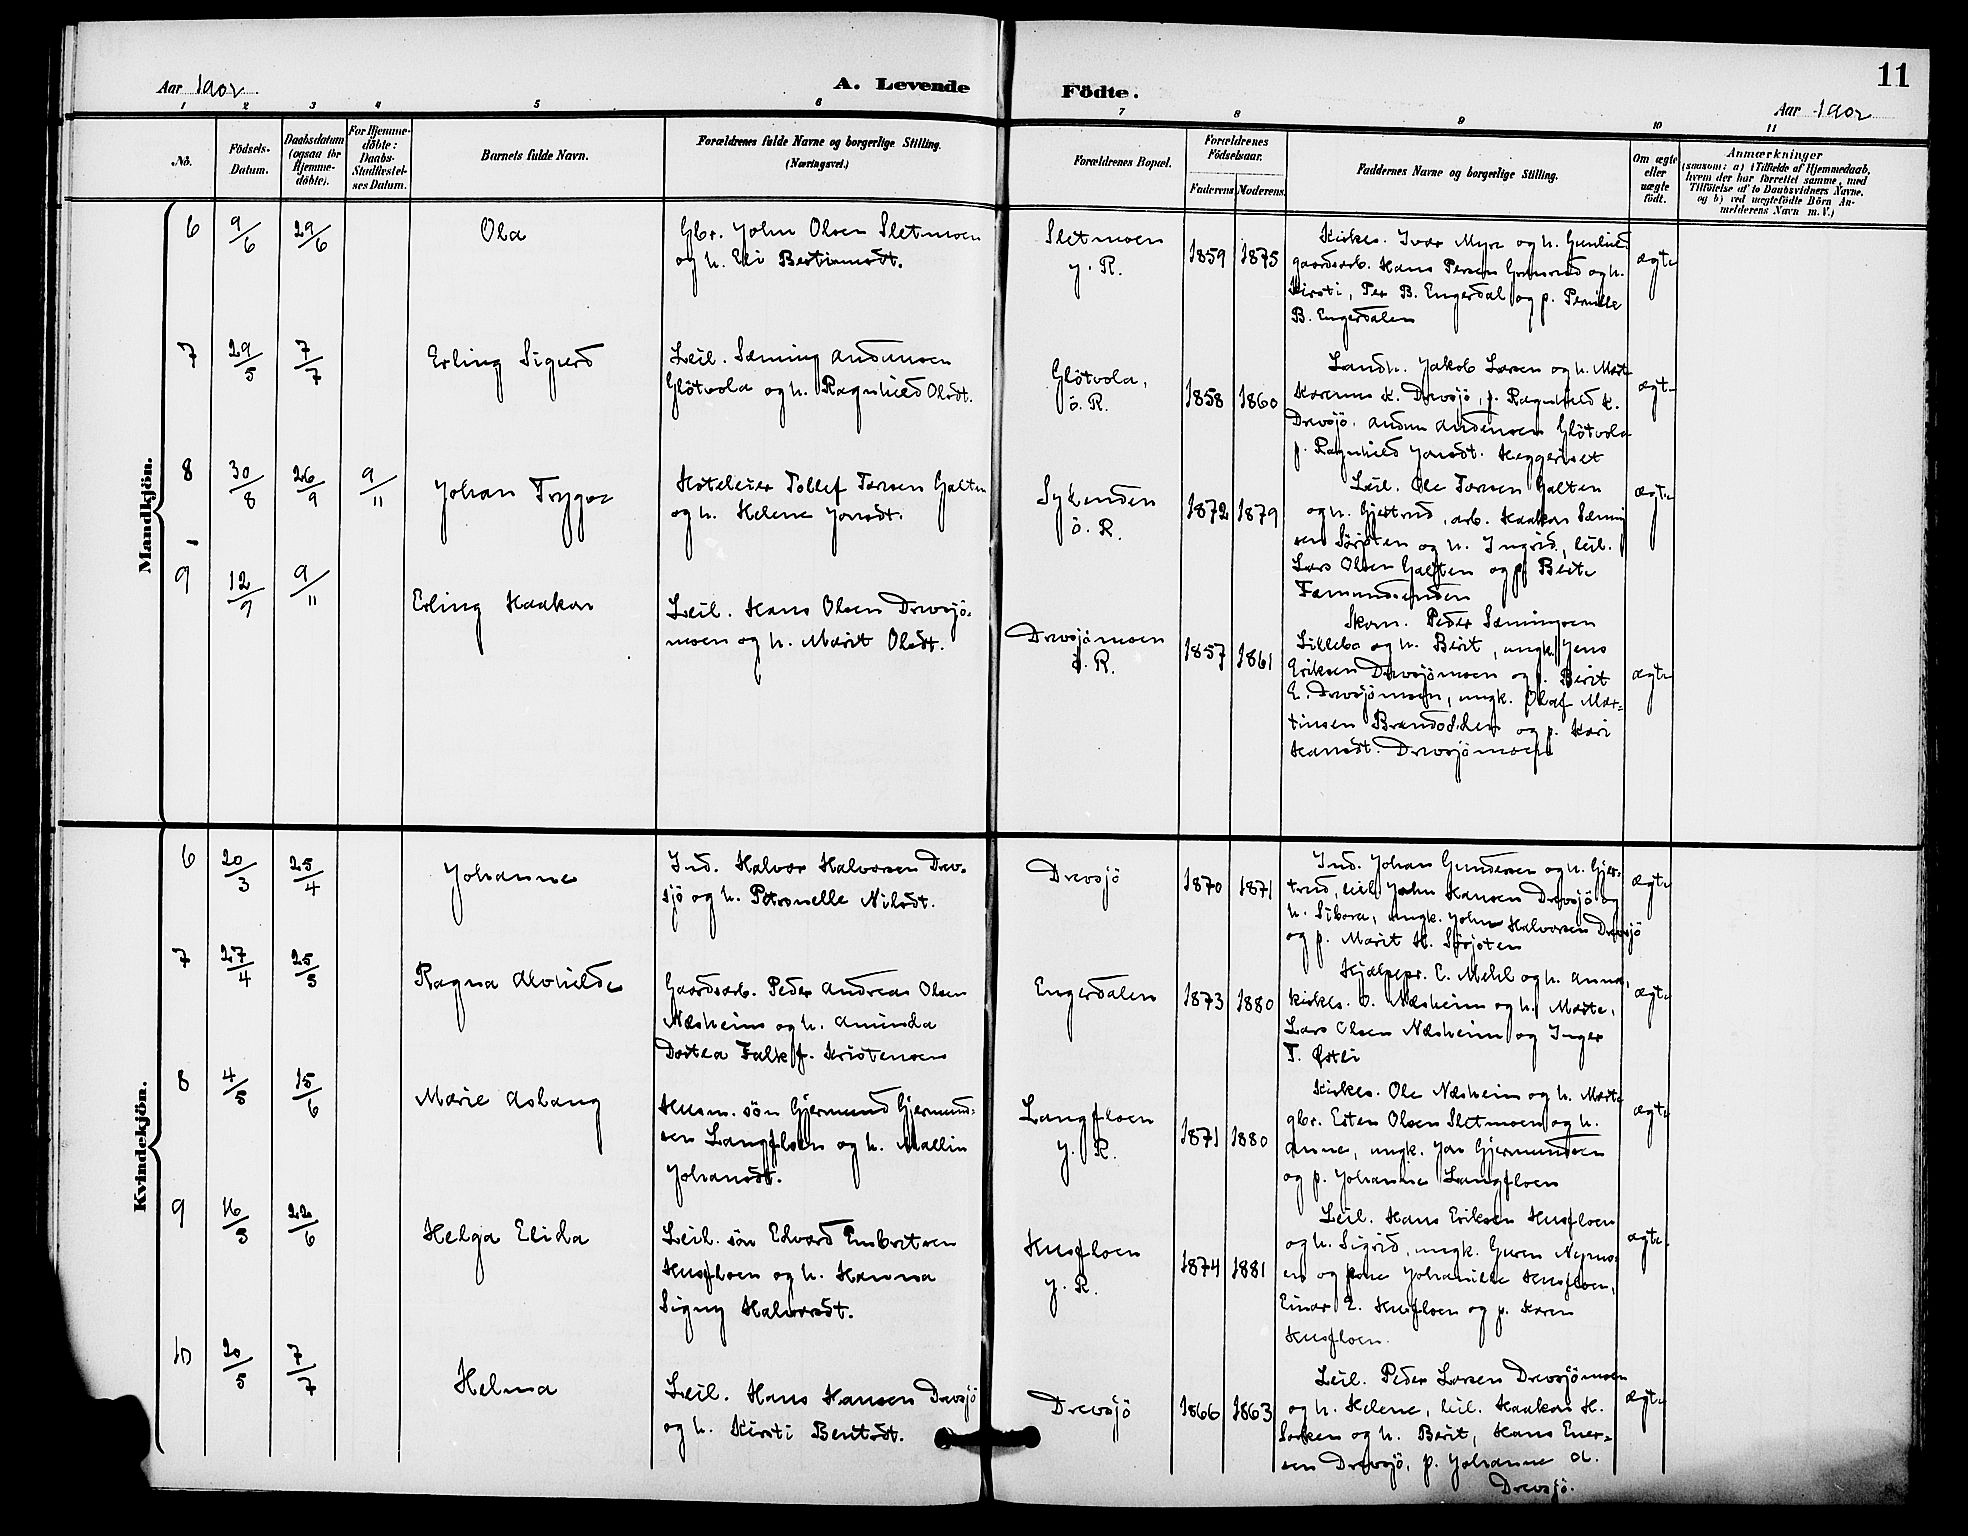 Aar 1902.
A. Levende
Födte.
Aar 1902
11
1 2 3 4 5 6 7 8 9 10 11
No.
Födsels-Datum.
Daabsdatum (ogsaa for Hjemme-döbte).
For Hjemme-döbte: Daabs-Stadfæstel-ses Datum.
Barnets fulde Navn.
Forældrenes fulde Navne og borgerlige Stilling.
(Næringsvei.)
Forældrenes Bopæl.
Forældrenes Födselsaar.
Faderens Moderens.
Faddernes Navne og borgerlige Stilling.
Om ægte eller uægte födt.
Anmærkninger
(saasom: a) i Tilfælde af Hjemmedaab,
hvem der har forrettet samme, med
Tilföielse af to Daabsvidners Navne,
og b) ved uægtefödte Börn An-
melderens Navn m. V.)
Mandkjön.
6 9/6 29/6 Ola
Gbr. John Olsen Sletmoen
og h. Eli
Sletmoen
y. R.
1859 1875
Kirkes. Ivar Myre og h. Gunhild
gaardsarb. Hans Persen og h.
Kirsti, Per B. Engerdal og p. Pernille
B. Engerdalen
ægte
7 29/5 7/7 Erling Sigurd
Leil. Sæming Andersen
Glötvola og h. Ragnhild Olsdt.
Glötvola,
ö. R.
1858 1860
Landh. Jakob Larsen og h. Marit
Karenus K. Drevsjö, p. Ragnhild K.
Drevsjö. Andersen Glötvola
p. Ragnhild Jonsdt. Heggeriset
ægte
8 30/8 26/9 9/11 Johan Trygve
Hoteleier Tollef Tarsen Galten
og h. Helene Jonsdt.
Sykenden
ö. R.
1872 1879
Leil. Ole Tarsen Galten
og h. Gjertrud, arb. Haakon Sæming
sen Sörjoten og h. Ingrid, leil.
Lars Olsen Galten og p. Berte
Femundsenden
ægte
9 12/9 9/11 Erling Haakon
Leil. Hans Olsen Drevsjö-
moen og h. Marit Olsdt.
Drevsjömoen
ö. R.
1857 1861
Skom. Peder Sæmingsen
Lillebo og h. Berit, ungk. Jens
Eriksen Drevsjömoen og p. Berit
E. Drevsjömoen, ungk. Olaf Mar-
tinsen og p. Kari
Hansdt. Drevsjömoen
ægte
Kvindekjön.
6 20/3 25/4 Johanne
Ind. Halvor Halvorsen Drev-
sjö og h. Petronelle Nilsdt.
Drevsjö
1870 1871
Ind. Johan Gundersen og h. Gjer-
trud, leil. John Hansen Drevsjö og
h. ungk. John Halvorsen Drevsjö
og p. Marit H. Sörjoten
ægte
7 27/4 25/5 Ragna Alvhilde
Gaardsarb. Peder Andreas Olsen
Næsheim og h. Aminda
Dortea Falk f. Kristensen
Engerdalen
1873 1880
Hjælpepr. C. Mehl og h. Anna,
kirkes. O. Næsheim og h. Marte,
Lars Olsen Næsheim og Inger
T. Østli
ægte
8 4/5 15/6 Marie Aslaug
Husm. sön Gjermund Gjermund-
sen Langfloen og h. Mallin
Johansdt.
Langfloen
y. R.
1871 1880
Kirkes. Ole Næsheim og h. Marte
gbr. Esten Olsen Sletmoen og h.
Anne, ungk. Jon Gjermundsen
og p. Johanne Langfloen
ægte
9 16/5 22/6 Helga Elida
Leil. sön Edvard Embretsen
Husfloen og h. Hanna
Signy Halvorsdt.
Husfloen
y. R.
1874 1881
Leil. Hans Eriksen Husfloen
og h. Sigrid, ungk.
en og Johanne Husfloen,
Einar E. Husfloen og p. Karen
Husfloen.
ægte
10 20/5 7/7 Helma
Leil. Hans Hansen Drevsjö
og h. Kirsti Bentsdt.
Drevsjö
1866 1863
Leil. Peder Larsen Drevsjömoen
og h. Helene, leil. Haakon H.
Sorken og h. Berit, Hans Ener-
sen Drevsjö, p. Johanne
Drevsjö.
ægte